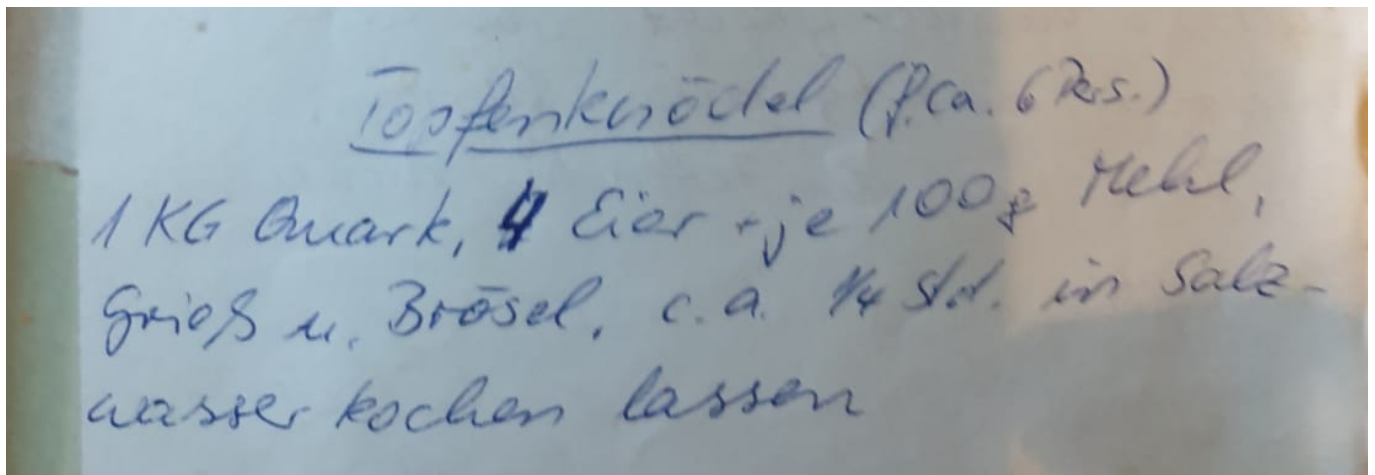 Topfenknödel (f. ca. 6 Pers.)
1 KG Quark, 4 Eier - je 100g Mehl,
Grieß u. Brösel, c.a. 1/4 Std. in Salz-
wasser kochen lassen